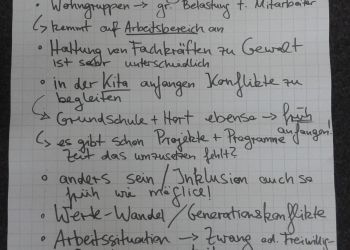 • Wohngruppen → gr. Belastung f. Mitarbeiter
↳ kommt auf Arbeitsbereich an
• Haltung von Fachkräften zu Gewalt
ist sehr unterschiedlich
• in der Kita anfangen Konflikte zu
begleiten
↳ Grundschule + Hort ebenso → früh
anfangen!
↳ es gibt schon Projekte + Programme
Zeit das umzusetzen fehlt?
• anders sein / Inklusion auch so
früh wie möglich!!
• Werte-Wandel / Generationskonflikte
• Arbeitssituation → Zwang od. Freiwillig-